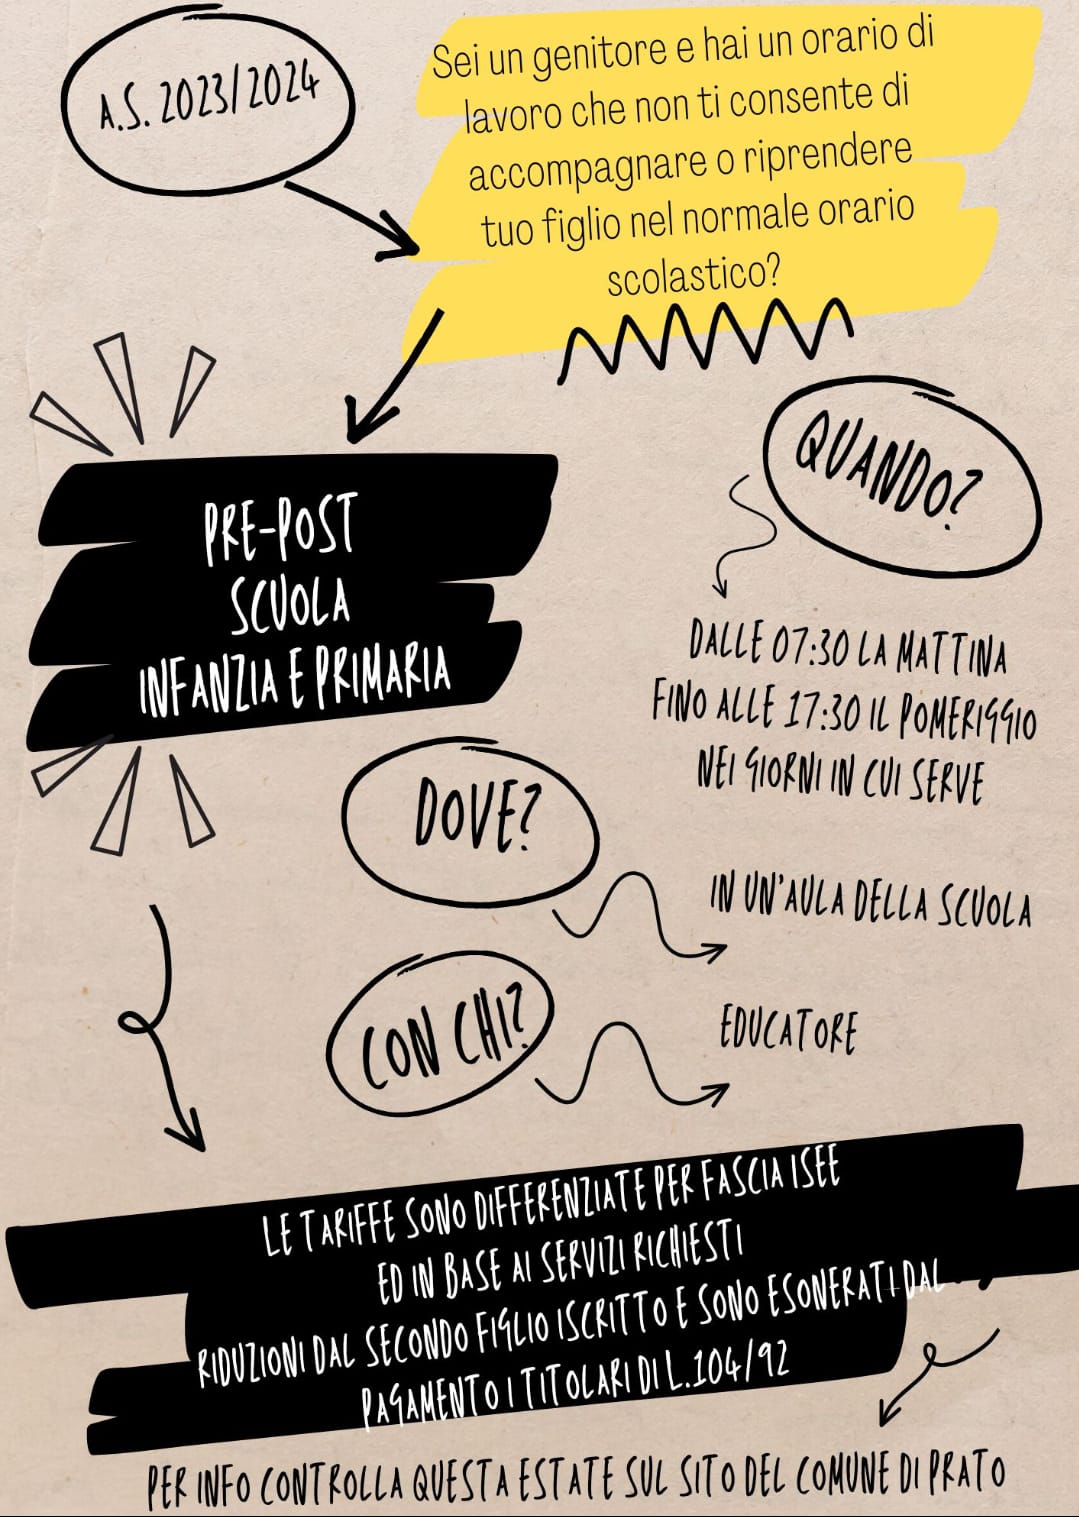 A.S. 2023/2024
Sei un genitore e hai un orario di
lavoro che non ti consente di
accompagnare o riprendere
tuo figlio nel normale orario
scolastico?
PRE-POST
SCUOLA
INFANZIA E PRIMARIA
QUANDO?
DALLE 07:30 LA MATTINA
FINO ALLE 17:30 IL POMERIGGIO
NEI GIORNI IN CUI SERVE
DOVE?
IN UN'AULA DELLA SCUOLA
CON CHI?
EDUCATORE
LE TARIFFE SONO DIFFERENZIATE PER FASCIA ISEE
ED IN BASE AI SERVIZI RICHIESTI
RIDUZIONI DAL SECONDO FIGLIO ISCRITTO E SONO ESONERATI DAL
PAGAMENTO I TITOLARI DI L.104/92
PER INFO CONTROLLA QUESTA ESTATE SUL SITO DEL COMUNE DI PRATO